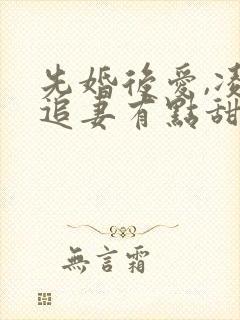 先婚後愛,凌
追妻有點甜
無言霜